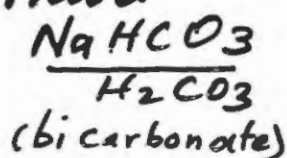 NaHCO3
H2CO3
(bicarbonate)